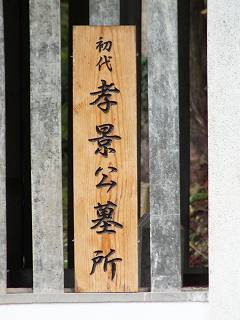 初代
孝景公墓所